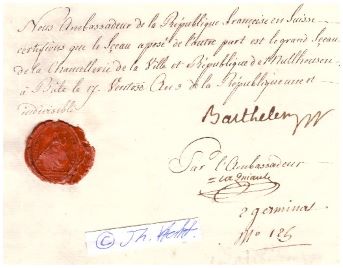 Nous Ambassadeur de la République française en Suisse
certifions que le sçeau apposé de l'autre part est le grand Sçeau
de la Chancellerie de la Ville et République de Mulhausen
à Bâle le 17. Ventose An 3 de la République une et
indivisible
Barthelemy
Par l'Ambassadeur
2 germinal
No 125
© Th.